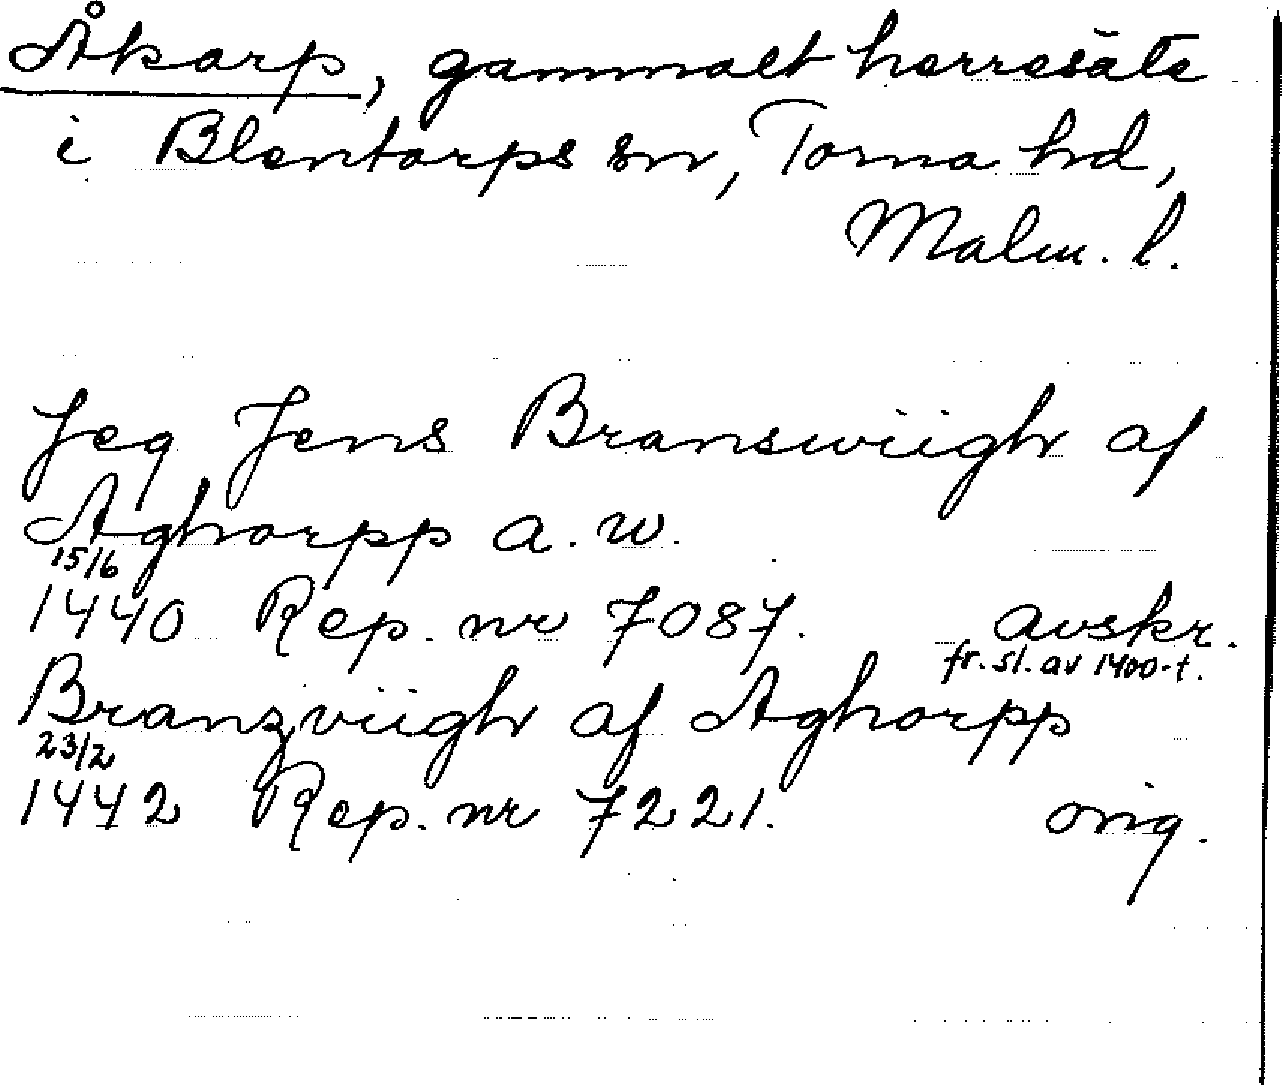 Åkarp, gammalt herresäte
i Blentarps sn, Torna hd,
Malm. l.
Jeg Jens Branswiigh af
Agharpp a. w.
15/6
1440 Rep. nr 7087. avskr.
fr. sl. av 1400-t.
Branzviigh af Agharpp
23/2
1442 Rep. nr 7221. orig.